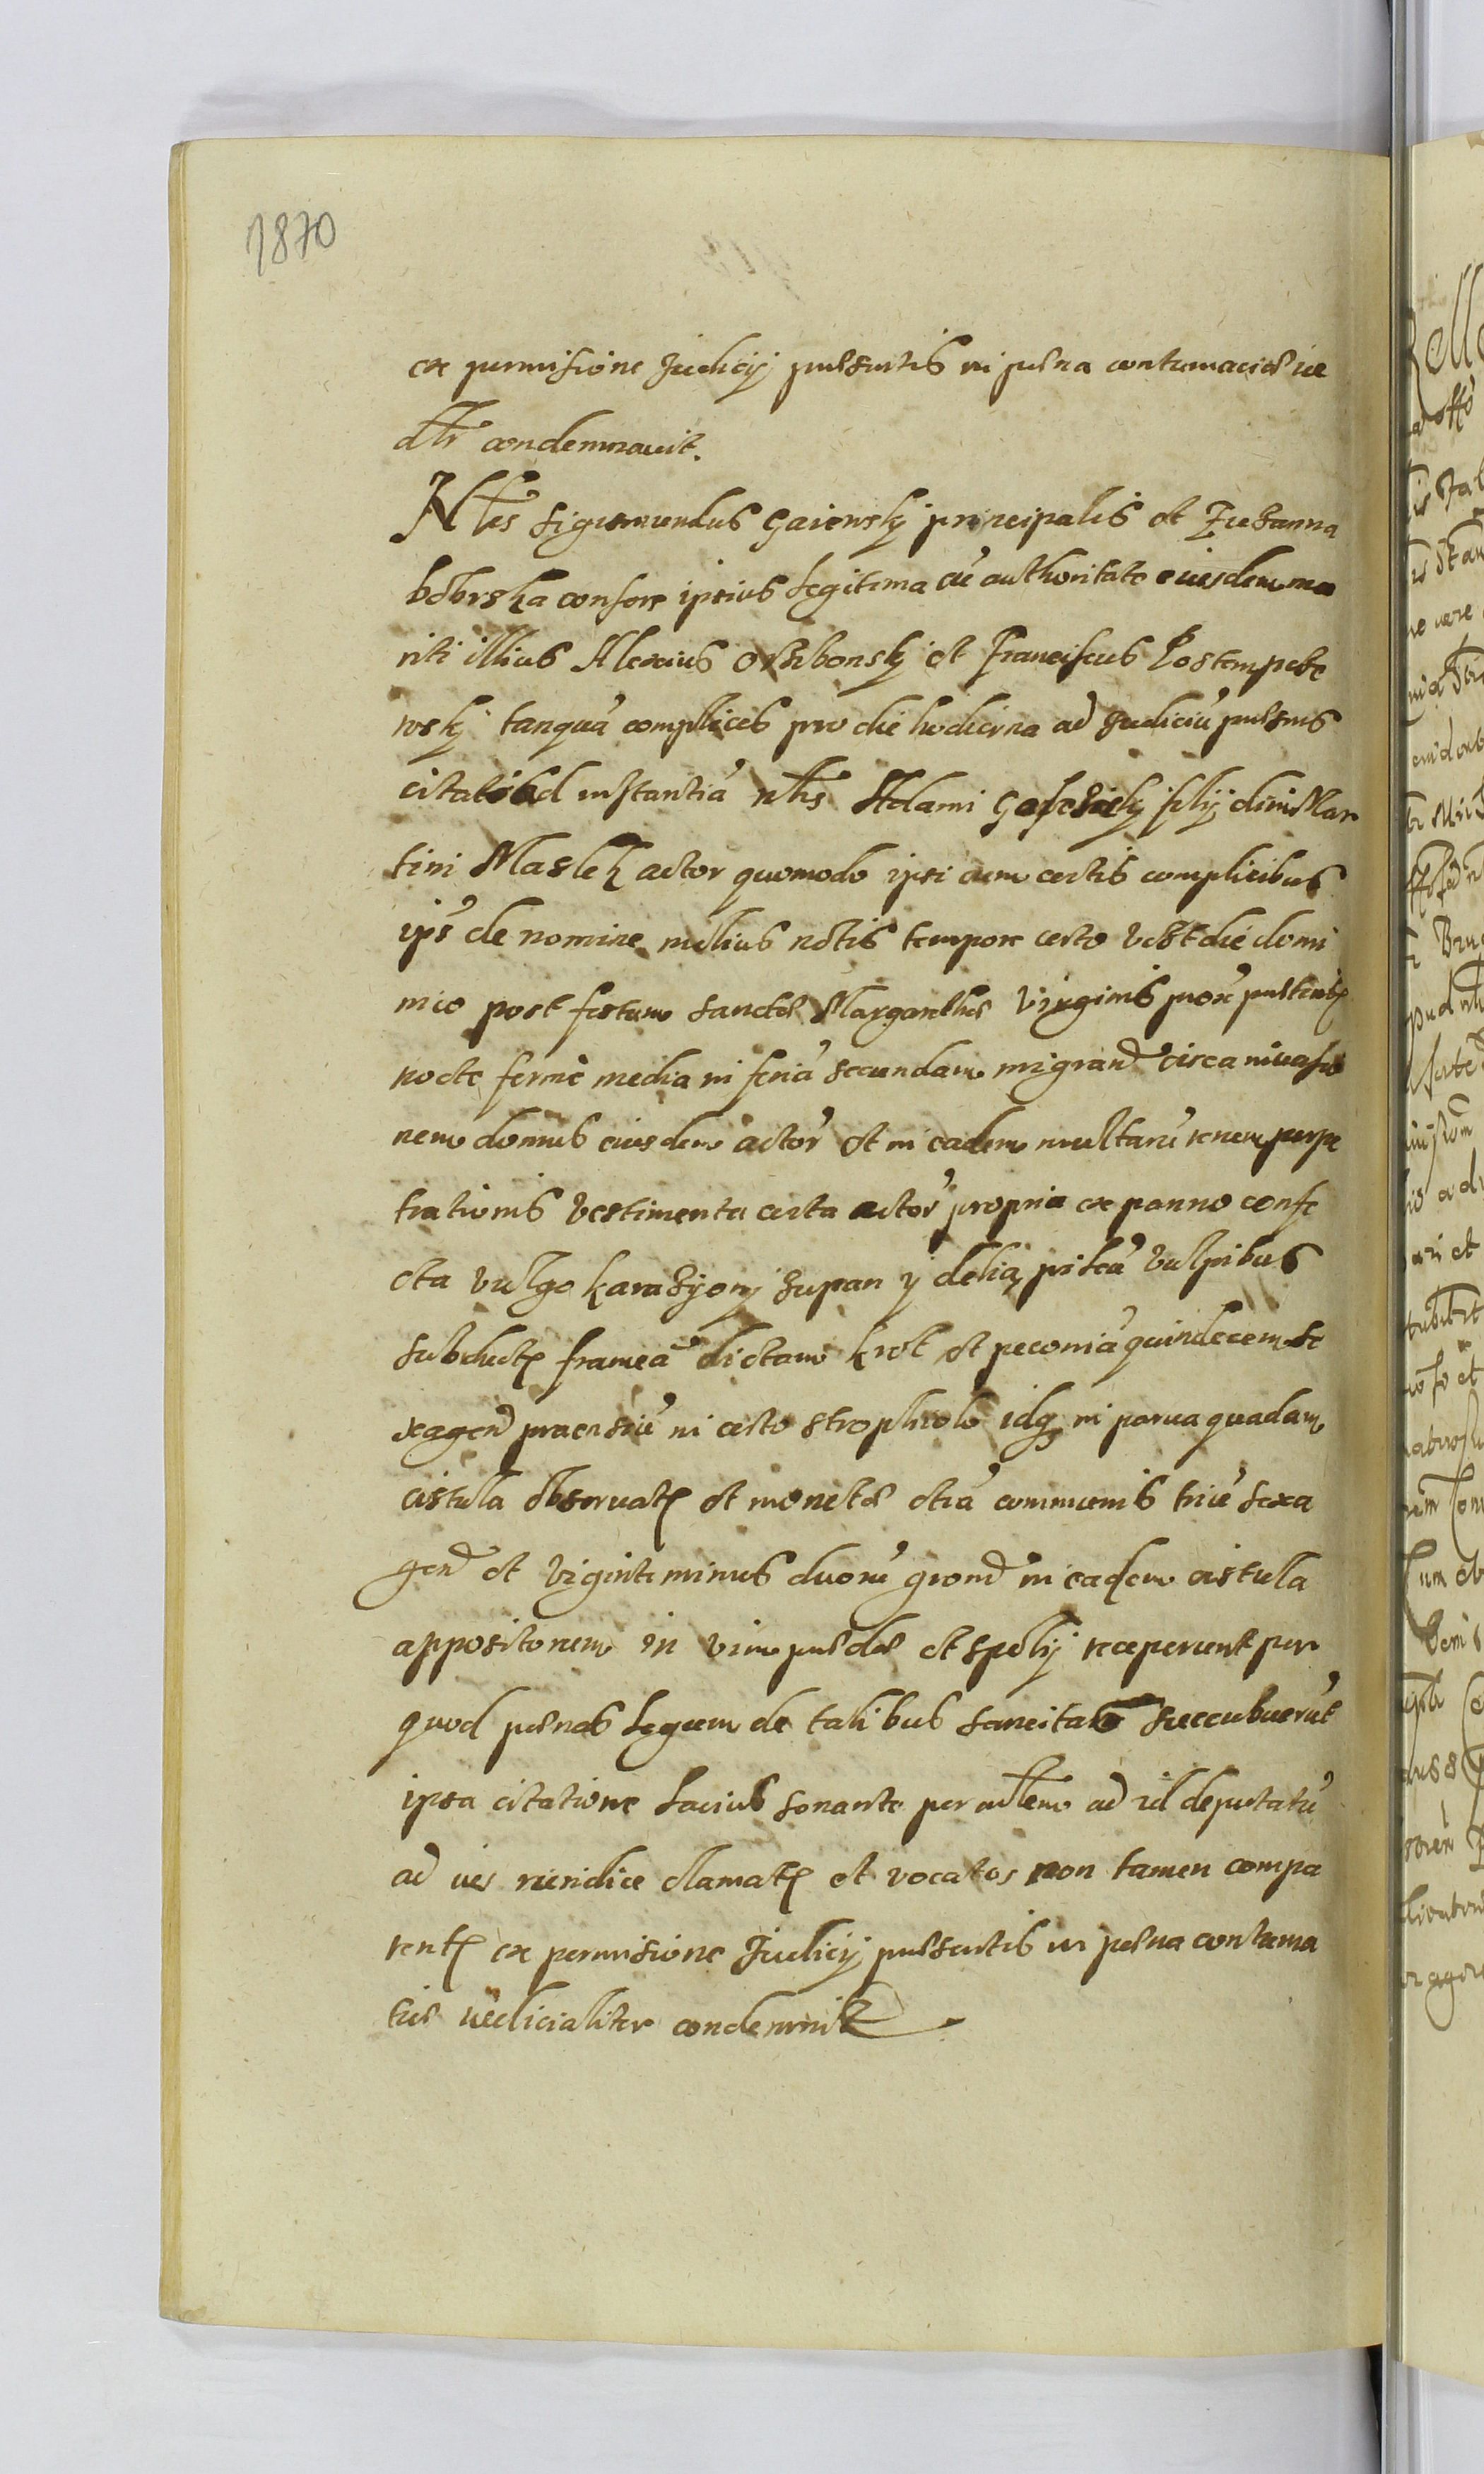 1870
ex permisione Judicij pnssntis in pena contumacie iu
dltr condemnauit.
Nbles Sigismundus Gaiewskj principalis et Zuzanna
bobrska consors ipsius legitima cũ authoritate eiusdem ma
riti illius Alexius et Franciscus
wskj tanquã complices pro die hodierna ad Judiciũ pnssns
citati ad instantiã nblis Adami filij olim Mar
tini Maslek actor quomodo ipsi cum certis complicibus
ips de nomine melius notis tempore certo vt est die domi
nico post festum sancte Margarethe Virginis prox pnteritz
nocte ferme media in feriã secundam migrand circa inuasio
nem domus eiusdem actor et in eadem multarũ rerum perpe
trationis vestimenta certa actor propria ex panno confe
cta vulgo karazÿowj zupan y delią pileũ vulpibus
subductz frameã dictam kord et pecuniã quindecem se
xagend praensiũ in certo strophiolo idq in parua quadam
cistula obseruatz et monete etiã communis triũ sexa
gend et viginti minus duorũ grond in eadem cistula
appositonem in vim prede et spolij receperunt per
quod penas legum de talibus sancitas succubuerũt
ipsa citatione lacius sonante per mlem ad id deputatũ
ad ius iuridice clamatz et vocatos non tamen compa
rentz ex permisione Judicij pnssntis in pena contuma
tie iudicialiter condemnit